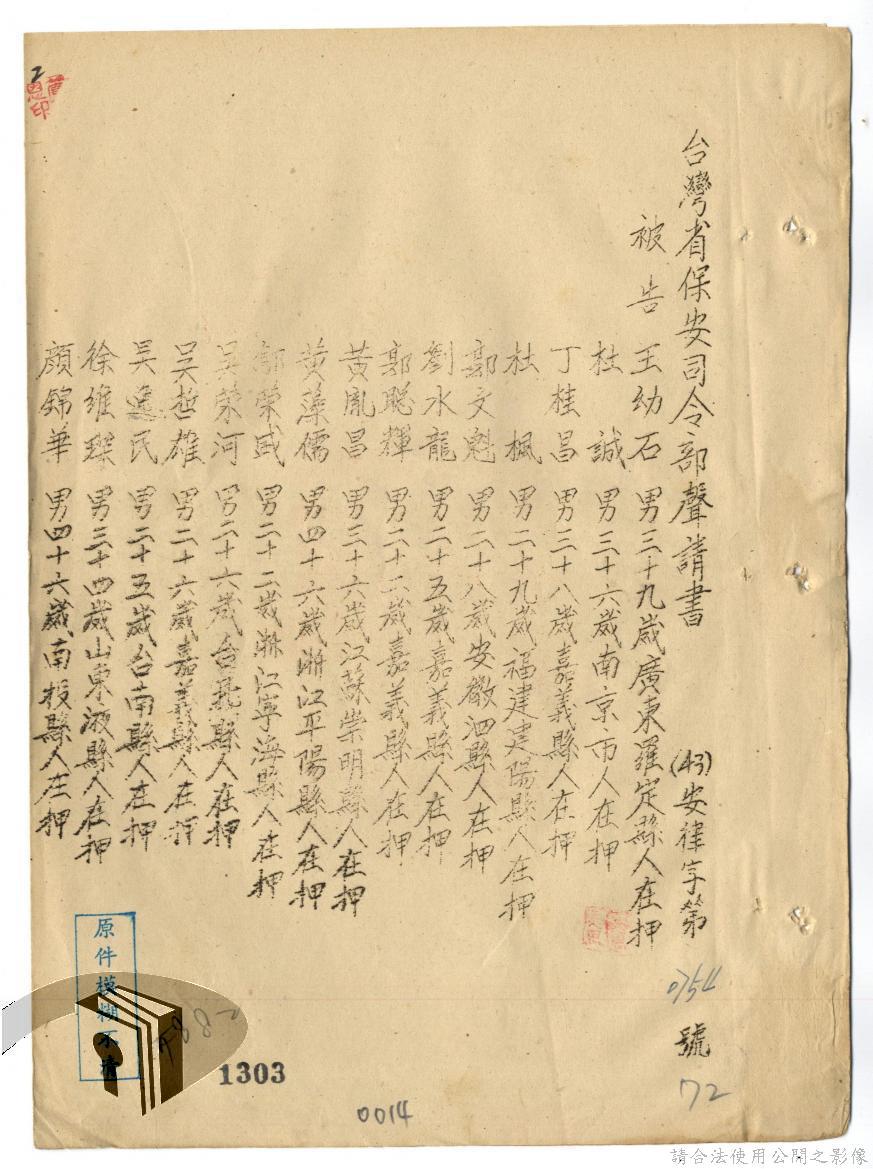 台灣省保安司令部聲請書 (43)安律字第0754號
被告 王幼石 男三十九歲廣東羅定縣人在押
杜誠 男三十六歲南京市人在押
丁桂昌 男三十八歲嘉義縣人在押
杜楓 男二十九歲福建建陽縣人在押
郭文魁 男二十八歲安徽泗縣人在押
劉水龍 男二十五歲嘉義縣人在押
郭聰輝 男二十二歲嘉義縣人在押
黃胤昌 男三十六歲江蘇崇明縣人在押
黃藻儒 男四十六歲浙江平陽縣人在押
鄔榮盛 男二十二歲浙江寧海縣人在押
吳榮河 男二十六歲台北縣人在押
吳哲雄 男二十六歲嘉義縣人在押
吳逸民 男二十五歲台南縣人在押
徐維琛 男三十四歲山東掖縣人在押
顏錦華 男四十六歲南投縣人在押
72
原件模糊不清
1303
0014
請合法使用公開之影像